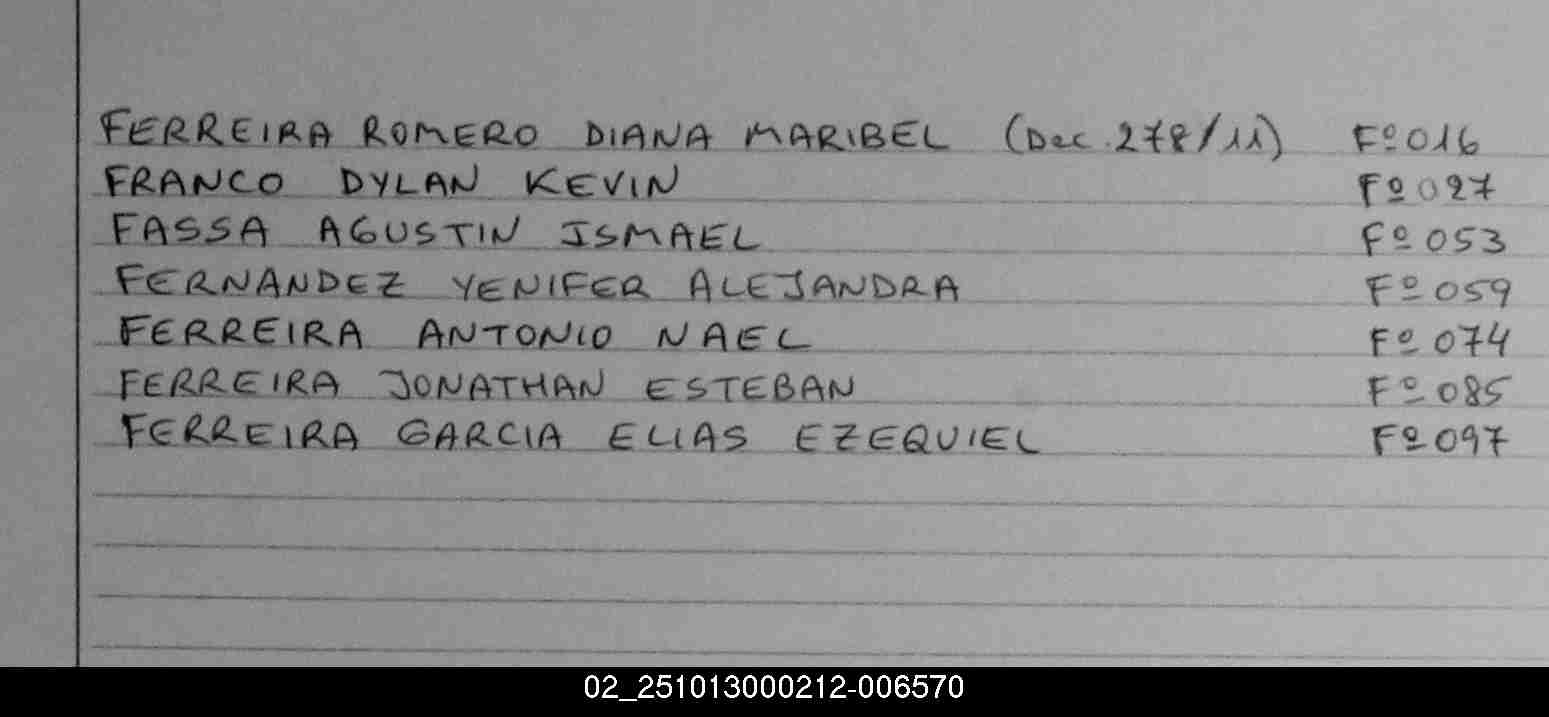 FERREIRA ROMERO DIANA MARIBEL (Dec. 278/11) Fº 016
FRANCO DYLAN KEVIN Fº 027
FASSA AGUSTIN ISMAEL Fº 053
FERNANDEZ YENIFER ALEJANDRA Fº 059
FERREIRA ANTONIO NAEL Fº 074
FERREIRA JONATHAN ESTEBAN Fº 085
FERREIRA GARCIA ELIAS EZEQUIEL Fº 097
02_251013000212-006570